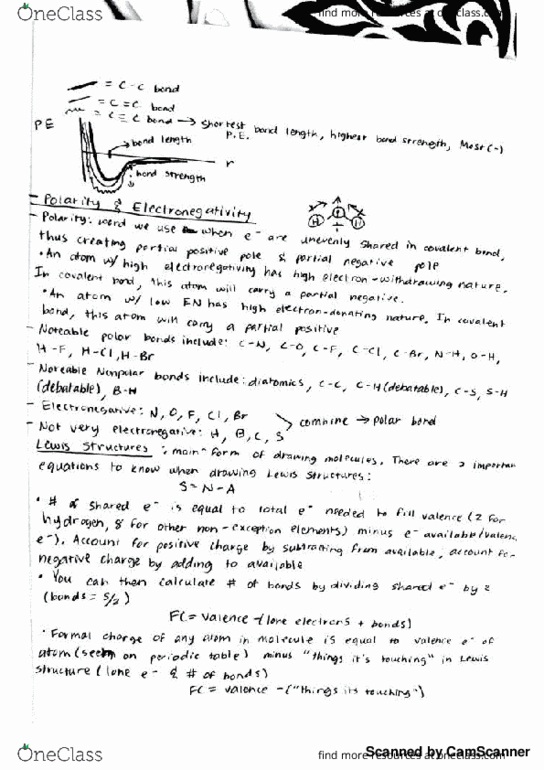 OneClass
find more resources at oneclass.com
= C-C bond
= C=C bond
= C≡C bond → Shortest bond length, highest bond strength, Most (-)
P.E.
PE
bond length
r
bond strength
- Polarity & Electronegativity
- Polarity: word we use when e⁻ are unevenly shared in covalent bond,
thus creating partial positive pole & partial negative pole
• An atom w/ high electronegativity has high electron-withdrawing nature.
In covalent bond, this atom will carry a partial negative.
• An atom w/ low EN has high electron-donating nature. In covalent
bond, this atom will carry a partial positive
- Noteable polar bonds include: C-N, C-O, C-F, C-Cl, C-Br, N-H, O-H,
H-F, H-Cl, H-Br
- Noteable Nonpolar bonds include: diatomics, C-C, C-H (debatable), C-S, S-H
(debatable), B-H
- Electronegative: N, O, F, Cl, Br
combine → polar bond
- Not very electronegative: H, B, C, S
Lewis Structures: "main" form of drawing molecules. There are 2 importan
equations to know when drawing Lewis Structures:
S = N - A
• # of shared e⁻ is equal to total e⁻ needed to fill valence (2 for
hydrogen, 8 for other non-exception elements) minus e⁻ available (valenc
e⁻). Account for positive charge by subtracting from available; account for
negative charge by adding to available
• You can then calculate # of bonds by dividing shared e⁻ by 2
(bonds = S/2)
FC = valence - (lone electrons + bonds)
• Formal charge of any atom in molecule is equal to valence e⁻ of
atom (seen on periodic table) minus "things it's touching" in Lewis
Structure (lone e⁻ & # of bonds)
FC = valence - ("things its touching")
OneClass
find more resources at oneclass.com
Scanned by CamScanner